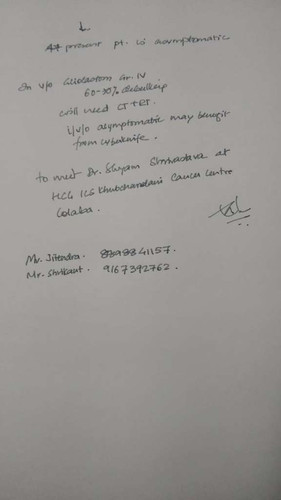 At present pt. is asymptomatic
In v/o Glioblastoma Gr. IV
60-70% debulking
will need CT + RT.
i/v/o asymptomatic may benefit
from cyberknife.
to meet Dr. Shyam Shrivastava at
HCG ICS Khubchandani Cancer Centre
Colaba.
Mr. Jitendra. 8898841157.
Mr. Shrikant. 9167392762.